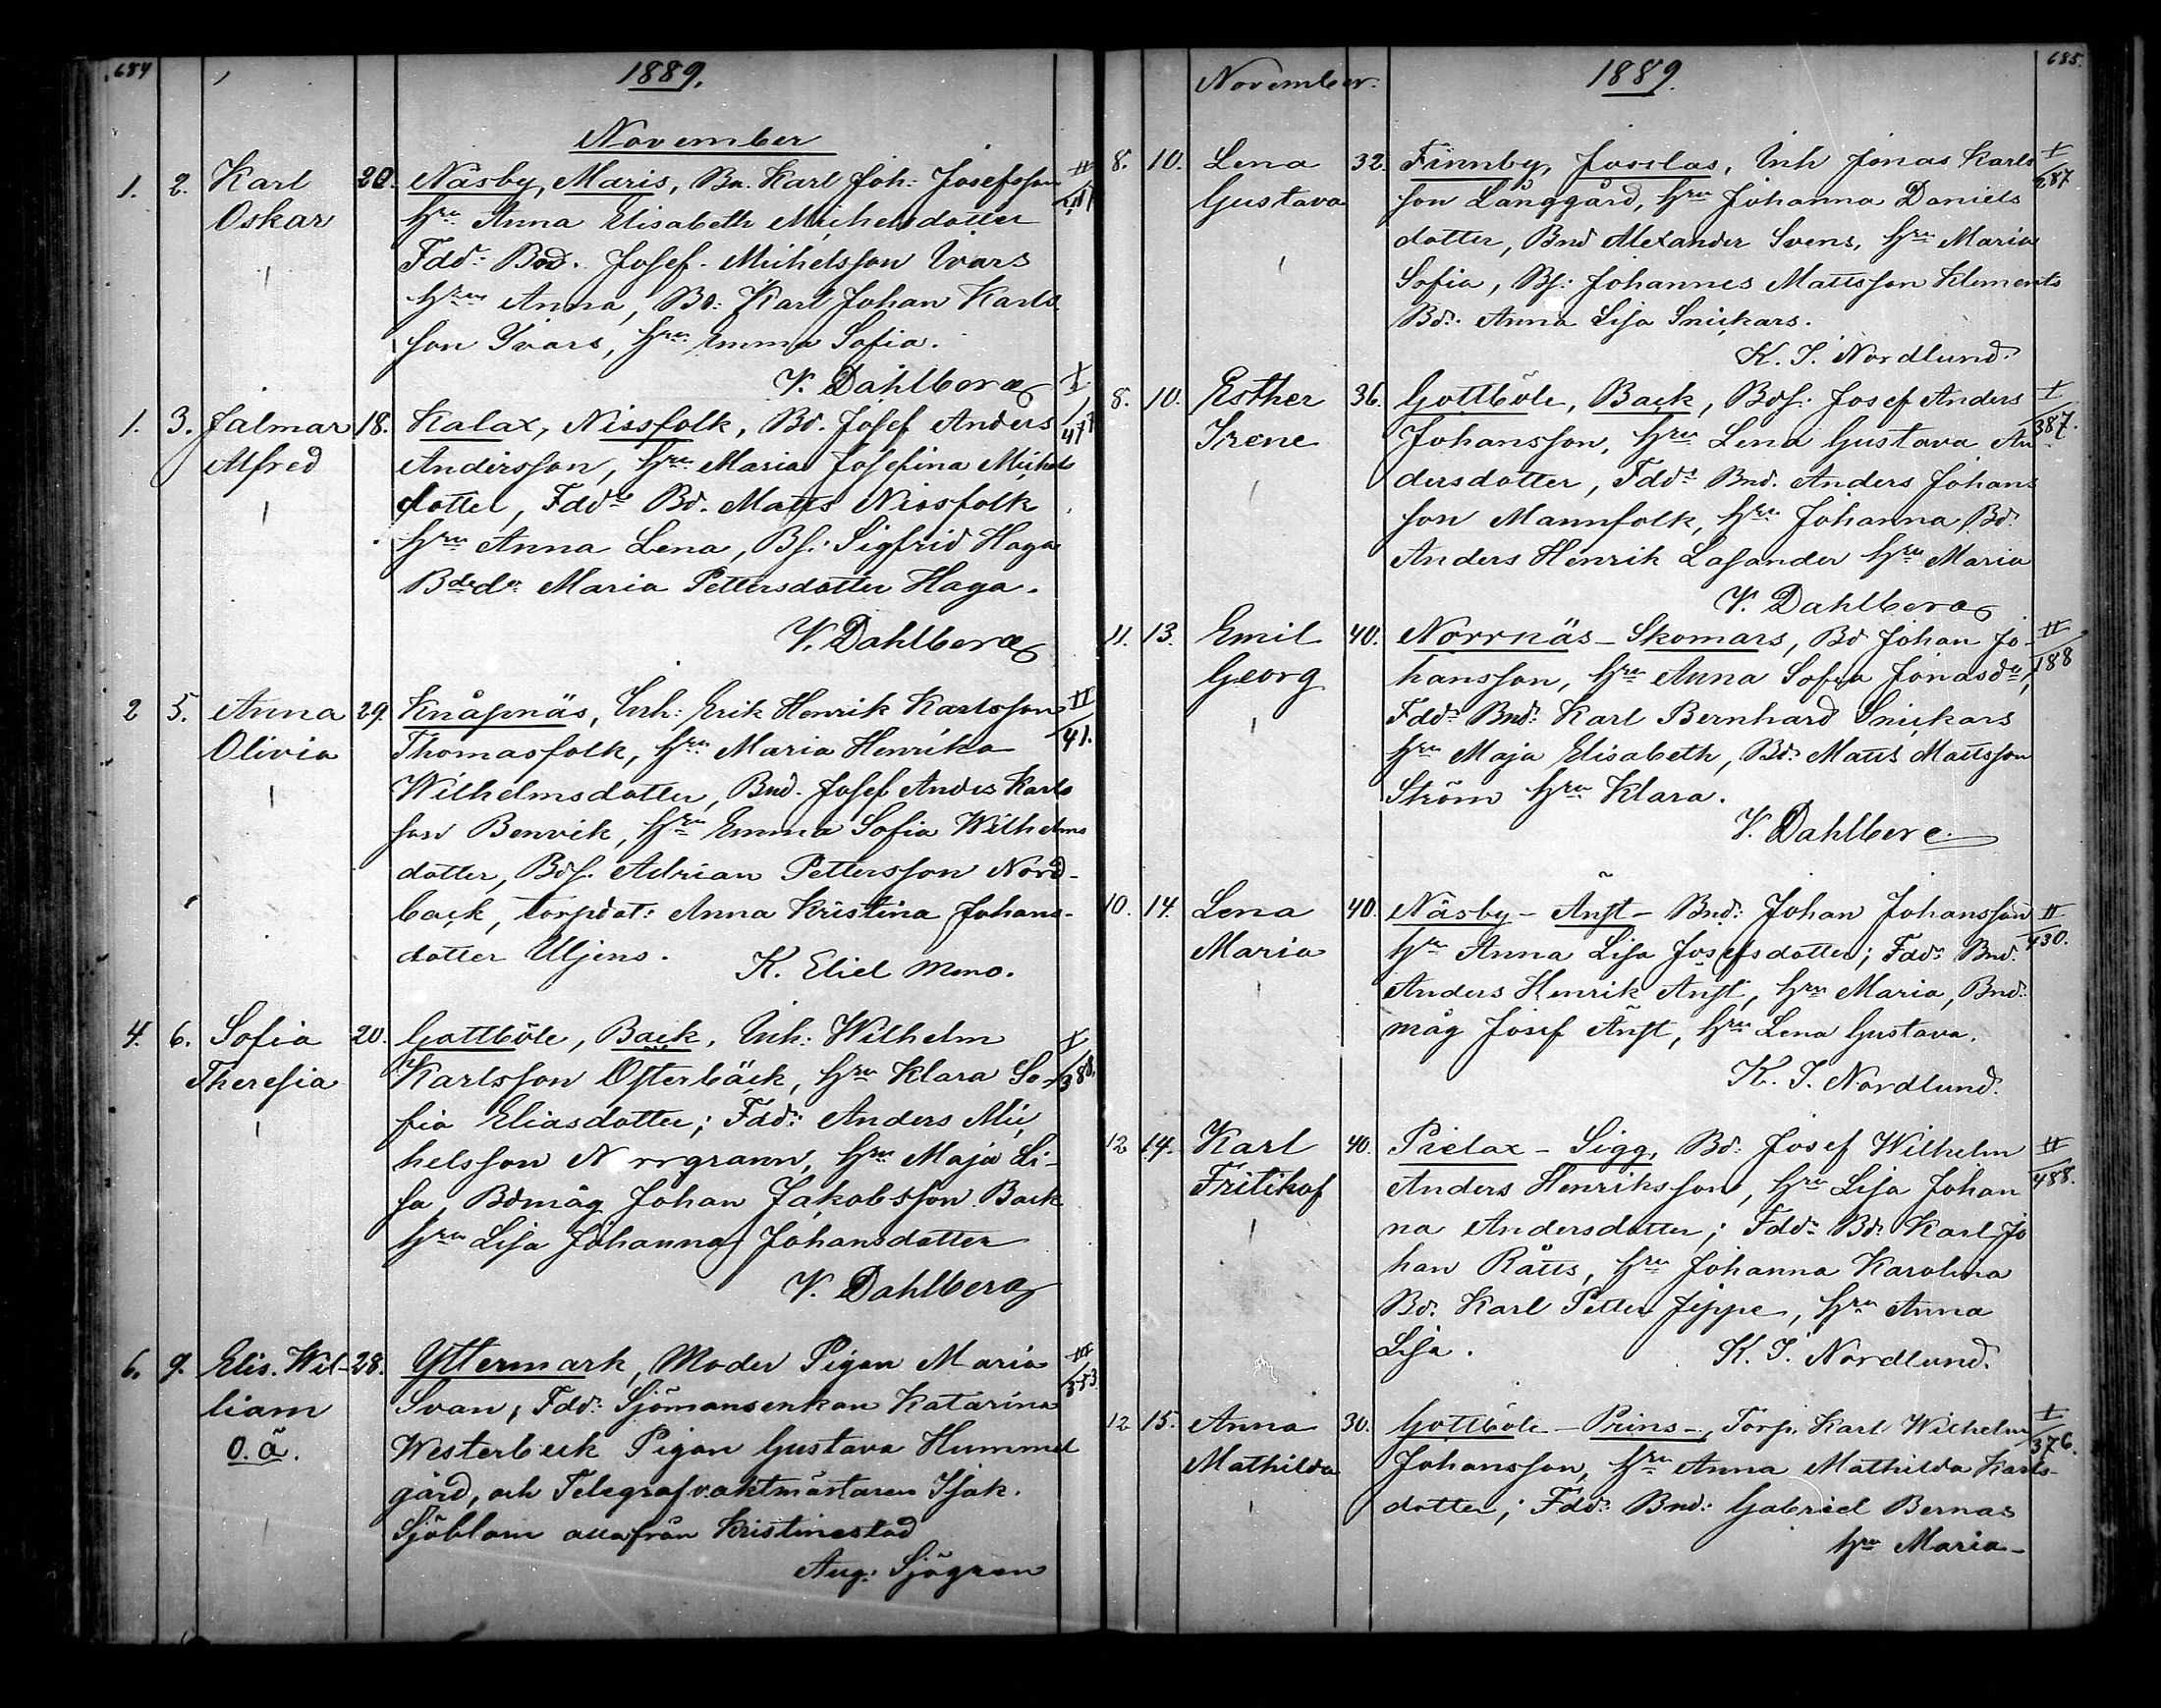 684
1889.
November
1. 2. Karl 20. Näsby, Maris, Bn. Karl Joh: Josefsson II
Oskar hru Anna Elisabeth Michelsdotter
Fddr: Bnd. Josef Michelsson Ivars
hrun Anna, Bd: Karl Johan Karls
son Ivars, hru Emma Sofia.
V. Dahlberg
1. 3. Jalmar 18. Kalax, Nissfolk, Bd. Josef Anders I
Alfred Andersson, hru Maria Josefina Michels
dotter, Fddr Bd. Matts Nissfolk
hru Anna Lena, Bs: Sigfrid Haga
Bdedr Maria Pettersdotter Haga.
V. Dahlberg
2 5. Anna 29. Knåpnäs, Inh: Erik Henrik Karlsson II
Olivia Thomasfolk, hru Maria Henrika 41.
Wilhelmsdotter, Bnd. Josef Anders Karls
son Benvik, hru Emma Sofia Wilhelms
dotter, Bds. Adrian Pettersson Nord-
back, torpdot: Anna Kristina Johans-
dotter Uljens. K. Eliel Meno.
4. 6. Sofia 20. Gottböle, Back, Inh: Wilhelm I
Theresia Karlsson Österbäck, hru Klara So- 388.
fia Eliasdotter; Fddr: Anders Mic
helsson Norrgrann, hru Maja Li-
sa, Bdmåg Johan Jakobsson Back
hru Lisa Johanna Johansdotter
V. Dahlberg
6. 9. Elis. Wil- 28. Yttermark, Moder Pigan Maria III
liam Svan, Fddr: Sjömansenkan Katarina 353
o.ä. Westerbeck Pigan Gustava Hummel
gård, och Telegrafvaktmästaren Isak
Sjöblom alla från Kristinestad
Aug: Sjögren
685.
November. 1889.
8. 10. Lena 32. Finnby, Josslas, Inh Jonas Karls I
Gustava son Långgård, hru Johanna Daniels 287
dotter, Bnd Alexander Svens, hru Maria
Sofia, Bs: Johannes Mattsson Klements
Bdr. Anna Lisa Snickars.
K. J. Nordlund.
8. 10. Esther 36. Gottböle, Back, Bds: Josef Anders I
Irene Johansson, hru Lena Gustava An 387.
dersdotter, Fddr Bnd. Anders Johans
son Mannfolk, hru Johanna, Bd:
Anders Henrik Lasander hru Maria
V. Dahlberg
11. 13. Emil 40. Norrnäs - Skomars, Bd Johan Jo- II
Georg hansson, hru Anna Sofia Jonasdr, 188
Fddr Bnd: Karl Bernhard Snickars
hru Maja Elisabeth, Bd: Matts Mattsson
Ström hru Klara.
V. Dahlberg
10. 14. Lena 40. Näsby - Ängst - Bnd: Johan Johansson II
Maria hru Anna Lisa Josefsdotter; Fddr Bnd. 430.
Anders Henrik Ängst, hru Maria, Bnd:
måg Josef Ängst, hru Lena Gustava.
K. J. Nordlund.
12 14. Karl 40. Pielax - Sigg, Bd: Josef Wilhelm II
Fritihof Anders Henriksson, hru Lisa Johan 488.
na Andersdotter; Fddr Bd: Karl Jo
han Rätts, hru Johanna Karolina
Bd. Karl Petter Jeppe, hru Anna
Lisa. K. J. Nordlund.
12 15. Anna 30. Gottböle - Prins -, Torp. Karl Wilhelm I
Mathilda Johansson, hru Anna Mathilda Karls- 376.
dotter; Fddr: Bnd: Gabriel Bernas
hru Maria -